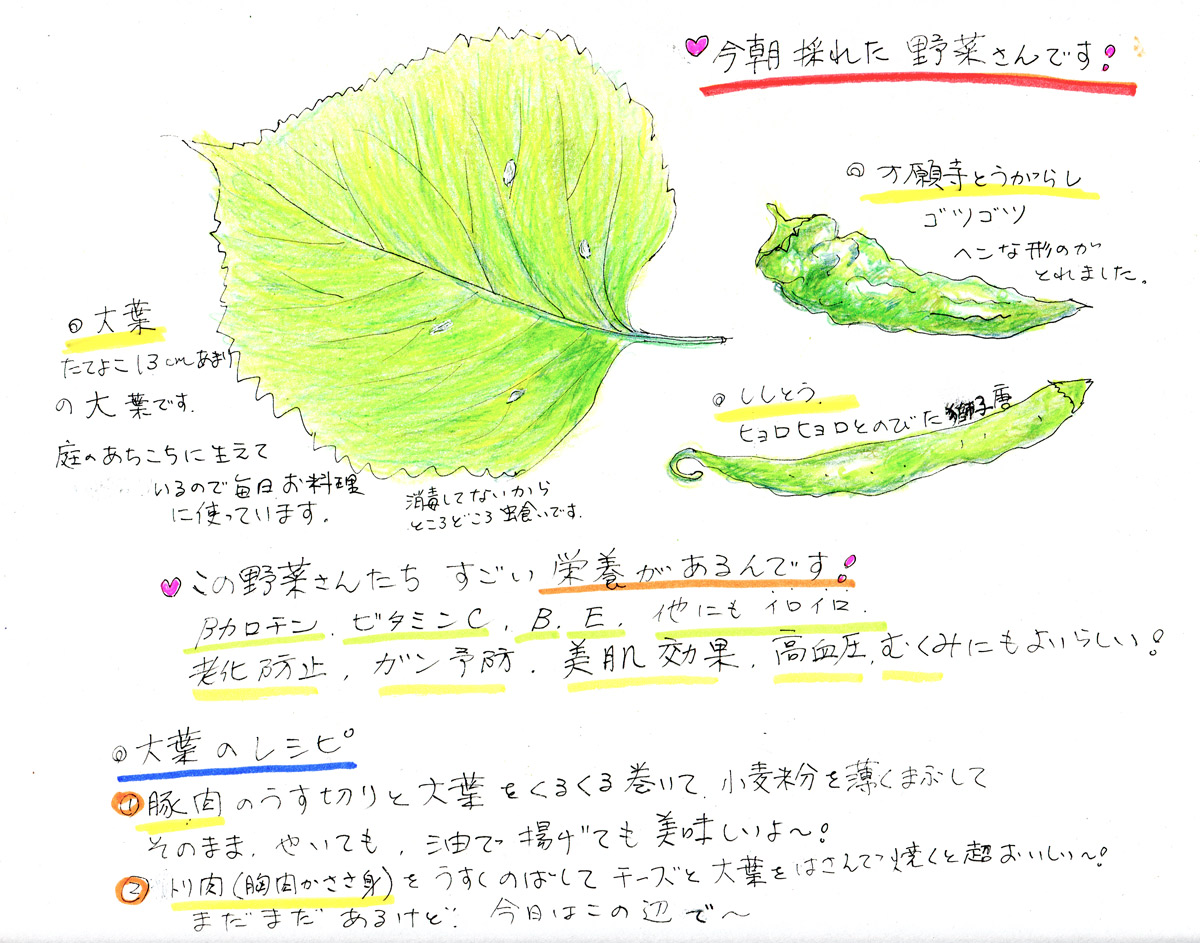 今朝採れた野菜さんです!
◎万願寺とうがらし
ゴツゴツ
ヘンな形のが
とれました。
◎大葉
たてよこ13cmあまり
の大葉です.
庭のあちこちに生えて
いるので毎日お料理
に使っています.
消毒してないから
ところどころ虫食いです.
◎ししとう.
ヒョロヒョロとのびた獅子唐
この野菜さんたち すごい栄養があるんです!
βカロチン. ビタミンC, B. E. 他にもイロイロ.
老化防止, ガン予防. 美肌効果. 高血圧. むくみにもよいらしい!
◎大葉のレシピ
① 豚肉のうす切りと大葉をくるくる巻いて. 小麦粉を薄くまぶして
そのまま. やいても, 油で揚げても美味しいよ〜!
② トリ肉(胸肉かささ身)をうすくのばしてチーズと大葉をはさんで焼くと超おいしい〜!
まだまだあるけど. 今日はこの辺で〜